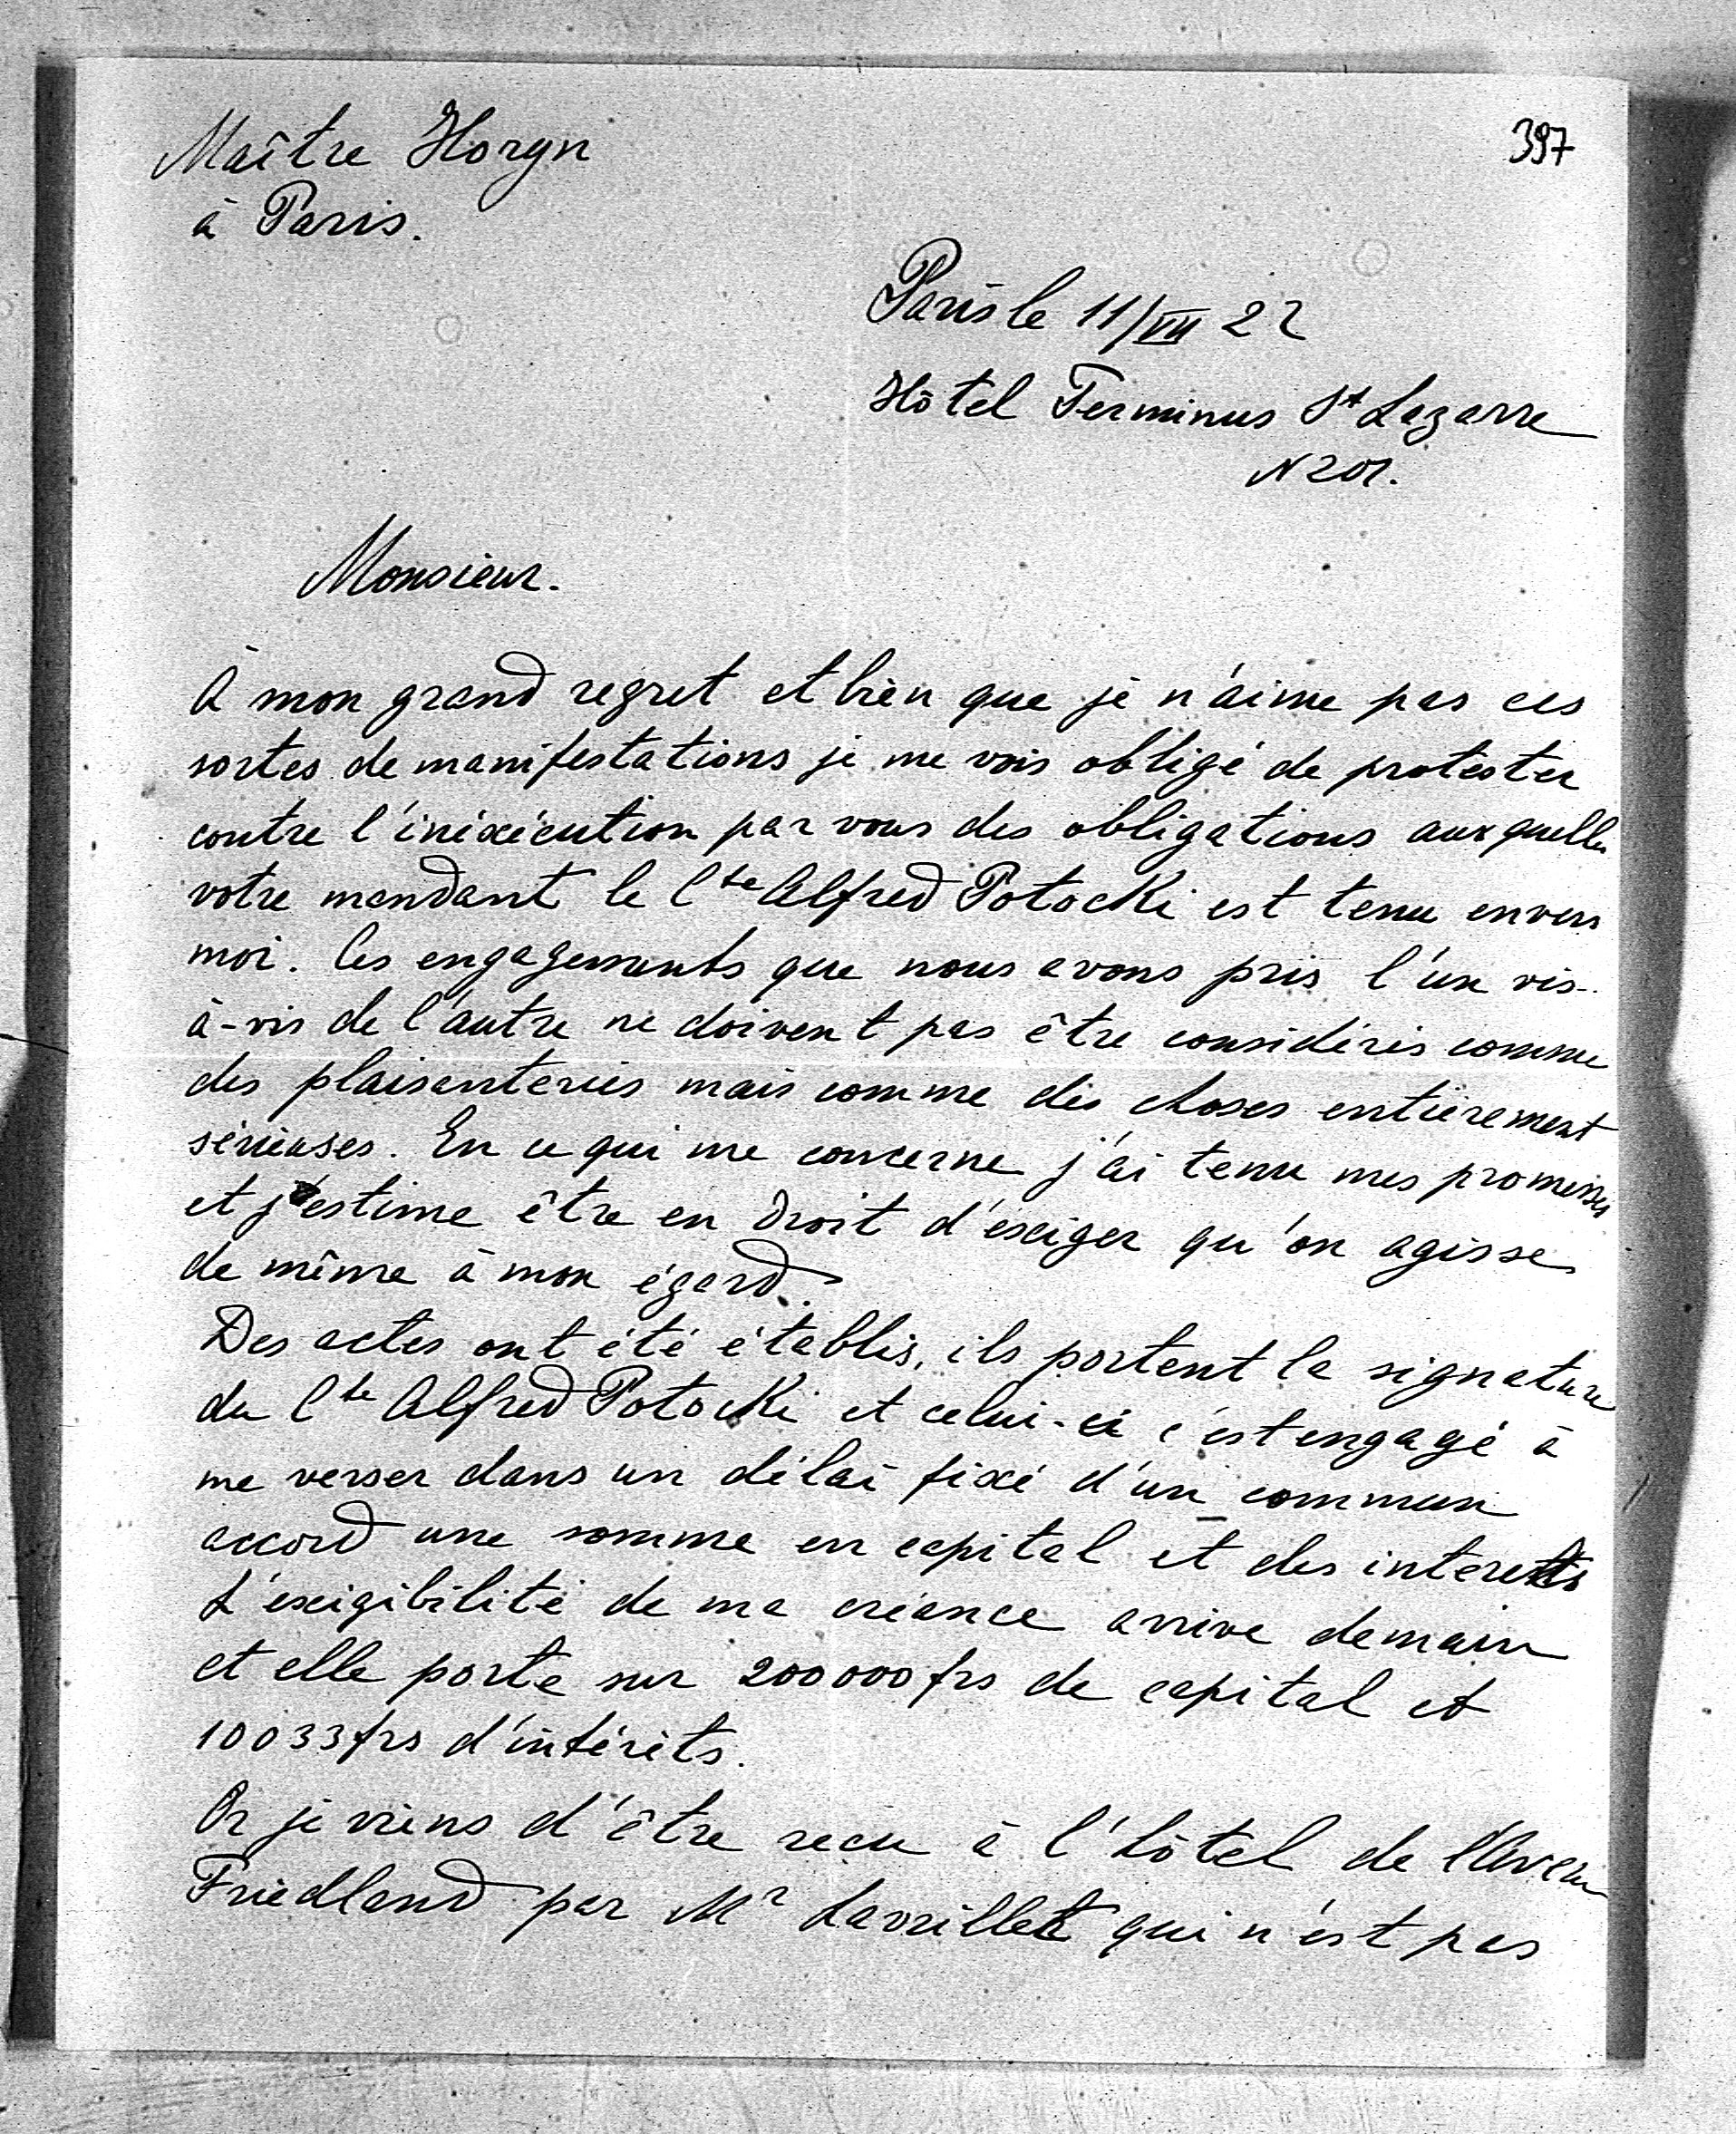 Maître Horyn
397
à Paris.
Paris le 11/VII 22
Hôtel Terminus St Lazarre
N 201.
Monsieur.
À mon grand regret et bien que je n'aime pas ces
sortes de manifestations je me vois obligé de protester
contre l'inéxécution par vous des obligations auxquelles
votre mandant le Cte Alfred Potocki est tenu envers
moi. Les engagements que nous avons pris l'un vis-
à-vis de l'autre ne doivent pas être considérés comme
des plaisanteries mais comme des choses entièrement
sérieuses. En ce qui me concerne j'ai tenu mes promesses
et j'estime être en droit d'éxiger qu'on agisse
de même à mon égard.
Des actes ont été établis, ils portent la signature
du Cte Alfred Potocki et celui-ci c'est engagé à
me verser dans un délai fixé d'un commun
accord une somme en capital et des interets
L'éxigibilité de ma créance arrive demain
et elle porte sur 200000 frs de capital et
10033 frs d'intérêts.
Or je viens d'être recu à l'hôtel de l'Aven
Friedland par Mr Lavrillet qui n'est pas